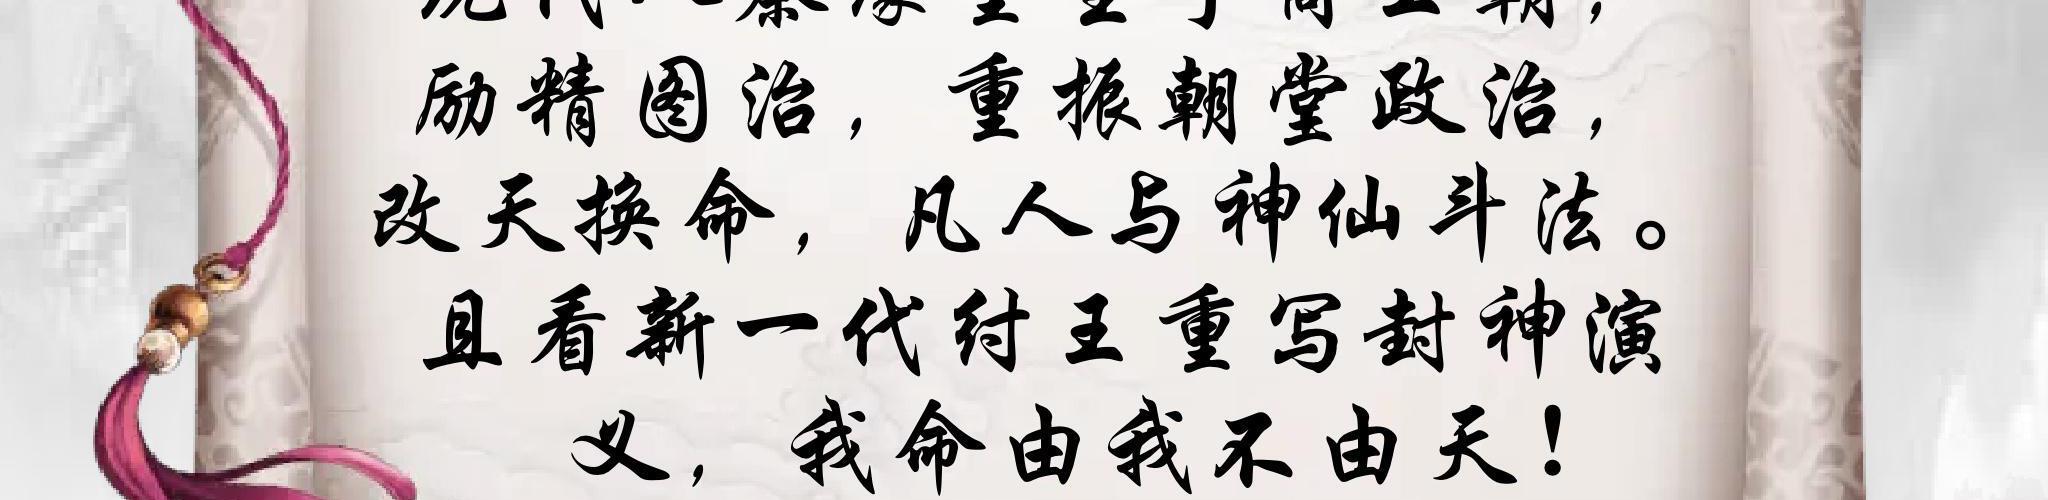 励精图治，重振朝堂政治，
改天换命，凡人与神仙斗法。
且看新一代纣王重写封神演
义，我命由我不由天！